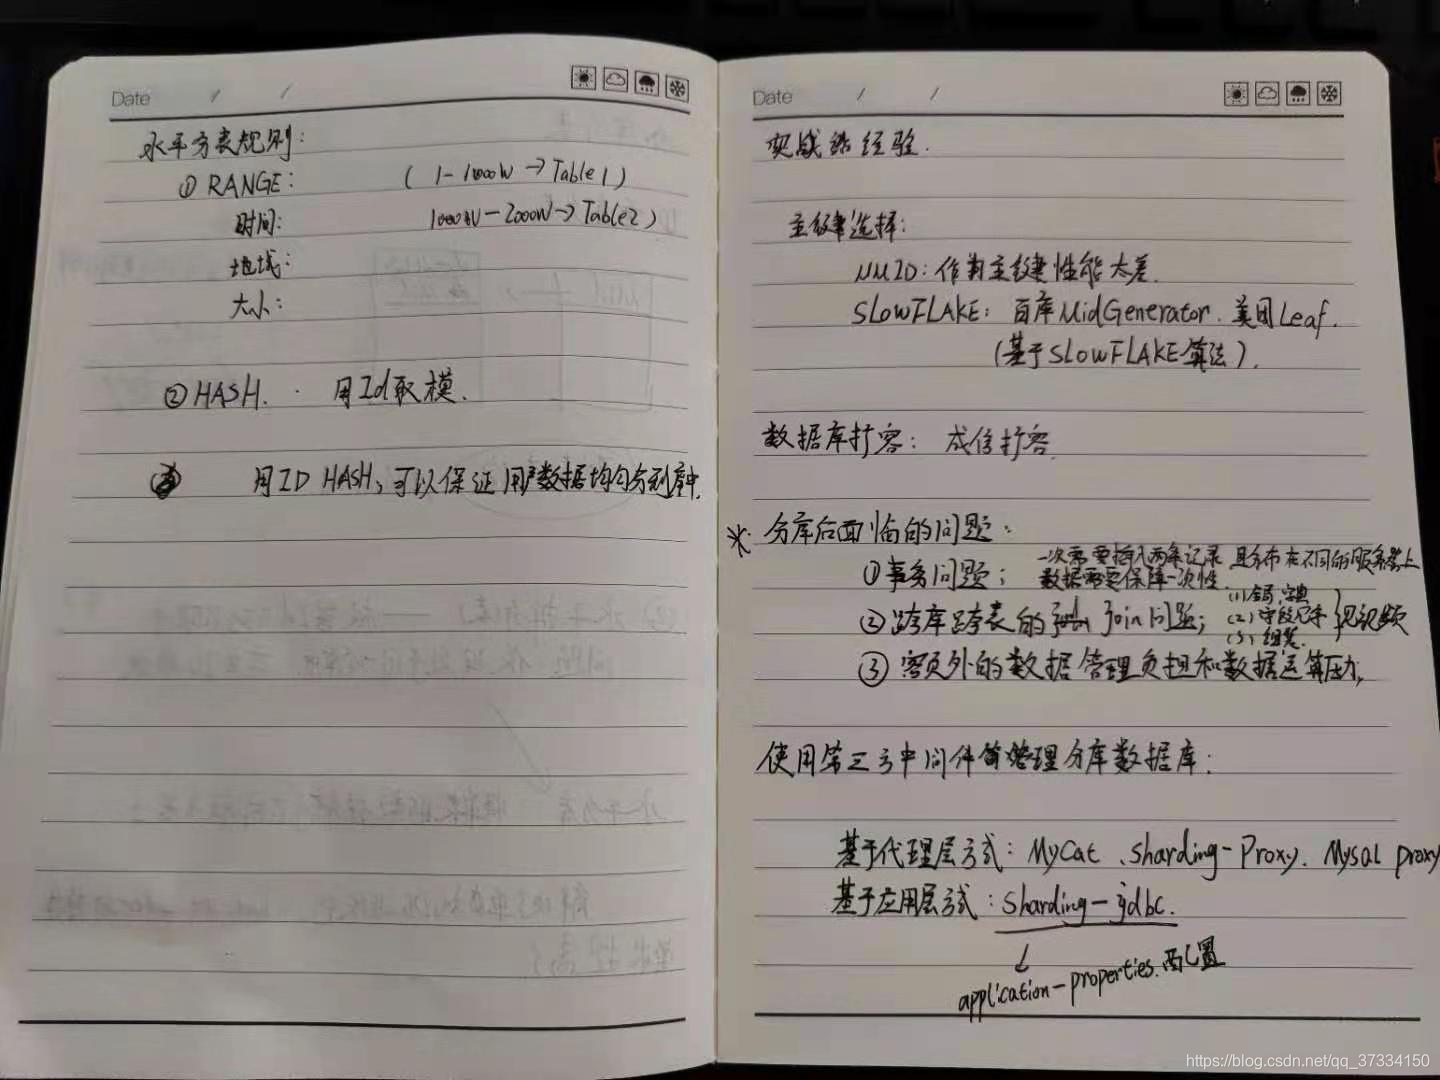 Date / /
水平分表规则:
① RANGE: (1-1000W→Table1)
时间: 1000W-2000W→Table2)
地域:
大小:
② HASH. 用Id取模.
用ID HASH,可以保证用户数据均匀分到库中.
Date / /
实战经验.
主键选择:
UUID:作为主键性能太差.
SLOWFLAKE:百度UidGenerator.美团Leaf.
(基于SLOWFLAKE算法).
数据库扩容: 成倍扩容.
* 分库后面临的问题:
①事务问题; 一次需要插入两条记录 且分布在不同的服务器上
数据需要保障一次性
②跨库跨表的 Join问题; (1)全局字典
(2)字段冗余 见视频
(3)组装.
③额外的数据管理负担和数据运算压力,
使用第三方中间件管理分库数据库:
基于代理层方式:MyCat、Sharding-Proxy. MySQL proxy
基于应用层式:Sharding-jdbc.
application-properties.配置
https://blog.csdn.net/qq_37334150